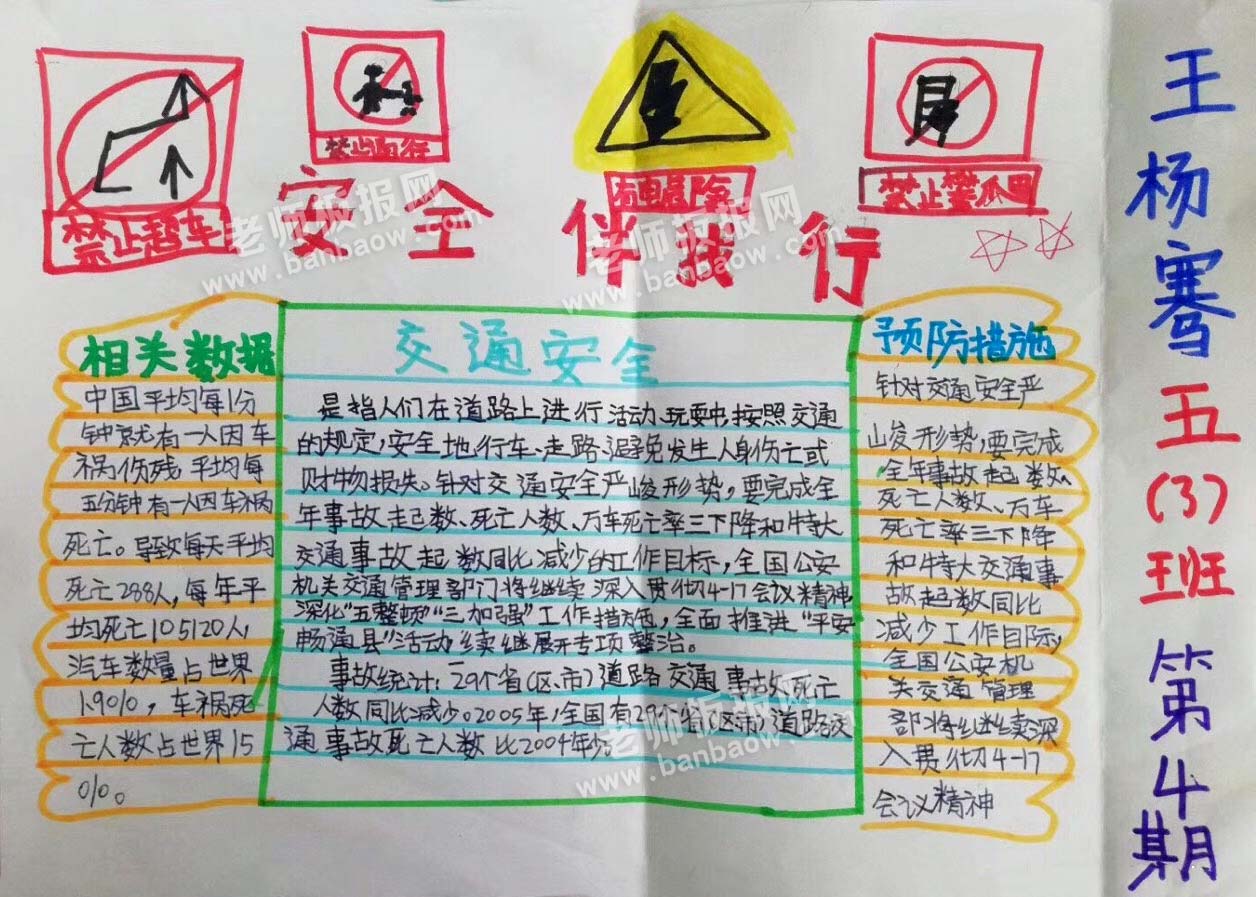 禁止超车
禁止向行
有电危险
禁止攀爬
安全伴我行
老师板报网
www.banbaow.com
老师板报网
www.banbaow.com
相关数据
中国平均每1分
钟就有一人因车
祸伤残平均每
五分钟有一人因车祸
死亡。导致每天平均
死亡288人,每年平
均死亡105120人,
汽车数量占世界
1.9%,车祸死
亡人数占世界15
%。
交通安全
是指人们在道路上进行活动、玩耍中,按照交通
的规定,安全地、行车、走路、避免发生人身伤亡或
财物损失。针对交通安全严峻形势,要完成全
年事故起数、死亡人数、万车死亡率三下降和特大
交通事故起数同比减少的工作目标,全国公安
机关交通管理部门将继续深入贯彻4-17会议精神
深化"五整顿""三加强"工作措施,全面推进"平安
畅通县"活动续继展开专项整治。
事故统计:29个省(区、市)道路交通事故死亡
人数同比减少。2005年,全国有29个省(区市)道路交
通事故死亡人数比2004年少。
老师板报网
www.banbaow.com
预防措施
针对交通安全严
峻形势,要完成
全年事故起数、
死亡人数、万车
死亡率三下降
和特大交通事
故起数同比
减少工作目标,
全国公安机
关交通管理
部将继续深
入贯彻4-17
会议精神
王杨骞五(3)班第4期